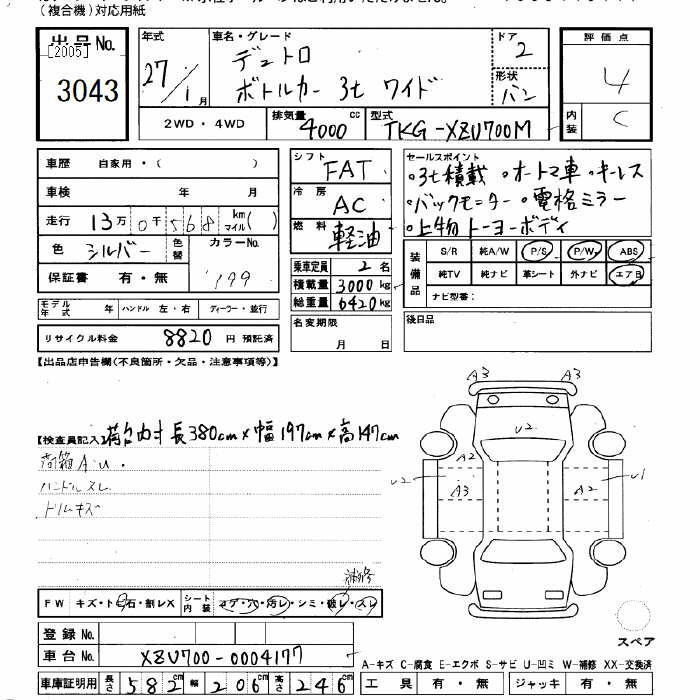 (複合機)対応用紙
出品No.
[2005]
3043
年式
27/1月
車名・グレード
デュトロ
ボトルカー 3t ワイド
ドア
2
形状
バン
評価点
4
内装
C
2WD・4WD
排気量
4000cc
型式
TKG-XZU700M
車歴 自家用・( )
車検 年 月
走行 13万0千568 km マイル( )
色 シルバー 色替 カラーNo.
保証書 有・無 199
モデル年式 年 ハンドル 左・右 ディーラー・並行
リサイクル料金 8820円 預託済
シフト FAT
冷房 AC
燃料 軽油
乗車定員 2名
積載量 3000kg
総重量 6420kg
名変期限
月 日
セールスポイント
・3t積載 ・オートマ車 ・キーレス
・バックモニター ・電格ミラー
・上物トーヨーボディ
装備品
S/R 純A/W P/S P/W ABS
純TV 純ナビ 革シート 外ナビ エアB
ナビ型番:
後日品
【出品店申告欄(不良箇所・欠品・注意事項等)】
【検査員記入】荷台内寸 長380cm×幅197cm×高147cm
荷箱A・U・
ハンドルスレ
ドリムキズ
A3 A3
U2
A2
U2 A3 A2 U1
補修
FW キズ・ト石・割レX シート内装 コゲ・穴・汚レ・シミ・破レ・スレ
登録No.
車台No. XZU700-0004177
車庫証明用 長さ 582cm 幅 206cm 高さ 246cm
スペア
A-キズ C-腐食 E-エクボ S-サビ U-凹ミ W-補修 XX-交換済
工具 有・無 ジャッキ 有・無